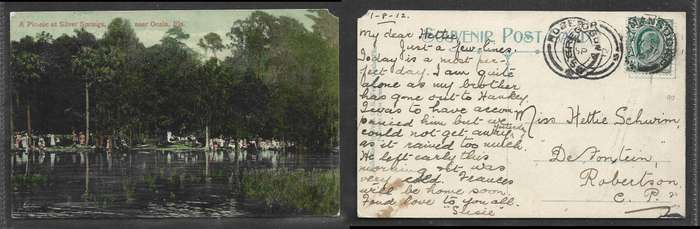 A Pic-nic at Silver Springs, near Ocala, Fla.
1-9-12.
SOUVENIR POST
My dear Hettie
Just a few lines.
Today is a most per-
fect day. I am quite
alone as my brother
has gone out to Hankey.
I was to have accom
panied him but we
could not get away
yesterday
as it rained too much.
He left early this
morning &
it was
very cold. Frances
will be home soon.
Fond love to you all.
"Elsie"
ROBERTSON
Miss Hettie Schwim,
De Fontein,
Robertson
C. P.